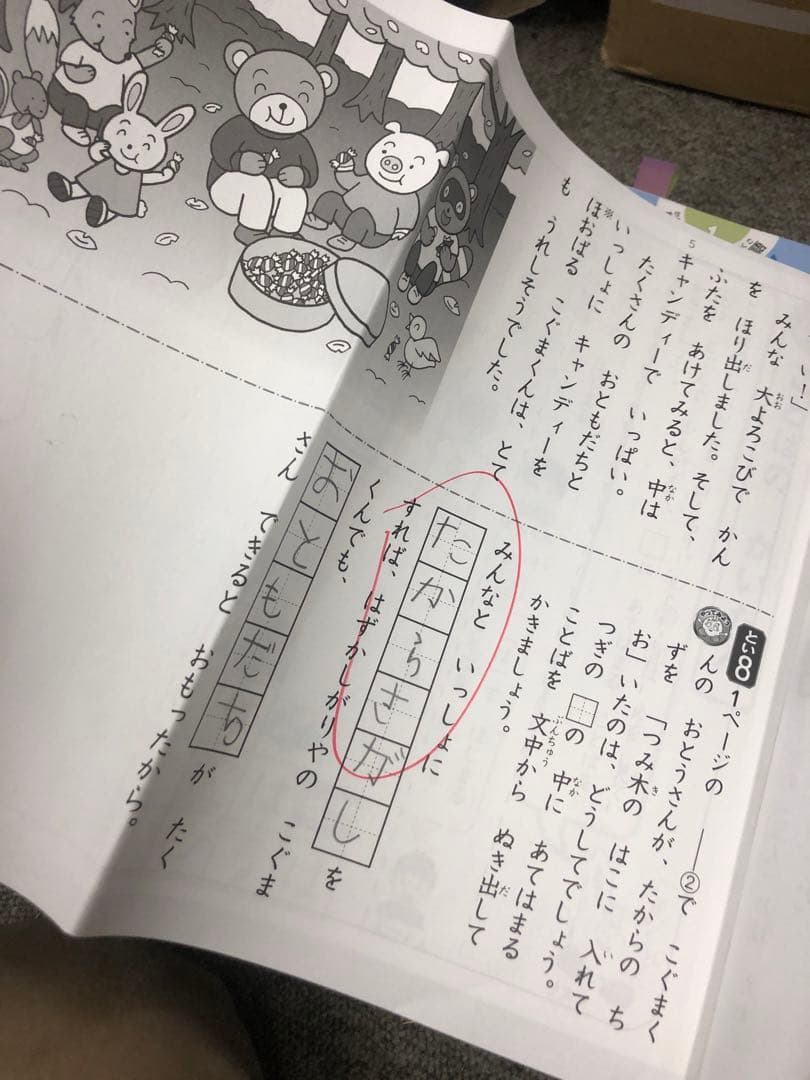 い！」
みんな 大よろこびで かん
を ほり出しました。そして、
ふたを あけてみると、中は
キャンディーで いっぱい。
たくさんの おともだちと
いっしょに キャンディーを
ほおばる こぐまくんは、とて
も うれしそうでした。
5
とい8
1ページの ――②で こぐまく
んの おとうさんが、たからの ち
ずを 「つみ木の はこに 入れて
お」いたのは、どうしてでしょう。
つぎの □の 中に あてはまる
ことばを 文中から ぬき出して
かきましょう。
みんなと いっしょに
たからさがし を
すれば、はずかしがりやの こぐま
くんでも、
おともだち が たく
さん できると おもったから。